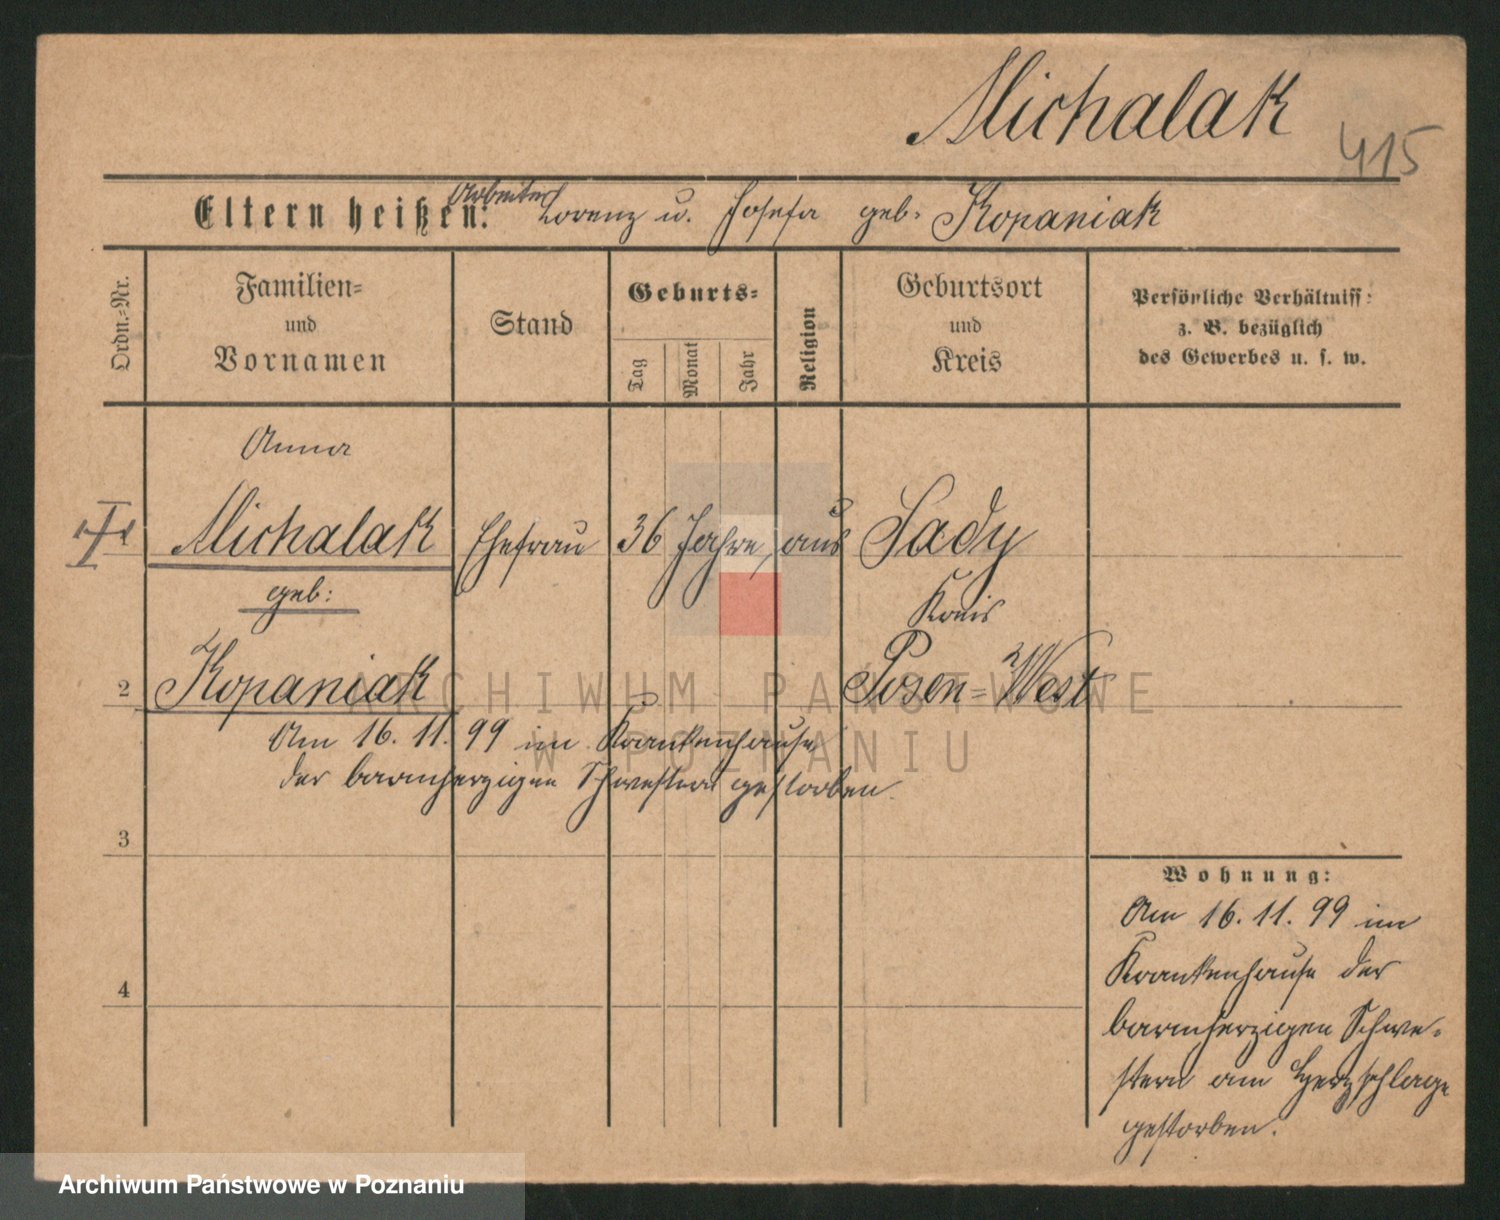 Michalak
415
Eltern heißen: Arbeiter Lorenz u. Josefa geb. Kopaniak
Ordn.-Nr.
Familien-
und
Vornamen
Stand
Geburts-
Tag
Monat
Jahr
Religion
Geburtsort
und
Kreis
Persönliche Verhältniss:
z. B. bezüglich
des Gewerbes u. s. w.
Anna
1 Michalak Ehefrau 36 Jahre, aus Sady
geb: Kreis
2 Kopaniak Posen-West
Am 16. 11. 99 im Krankenhause
der barmherzigen Schwestern gestorben.
3
4
Wohnung:
Am 16. 11. 99 im
Krankenhause der
barmherzigen Schwe-
stern am Herzschlage
gestorben.
ARCHIWUM PAŃSTWOWE
W POZNANIU
Archiwum Państwowe w Poznaniu